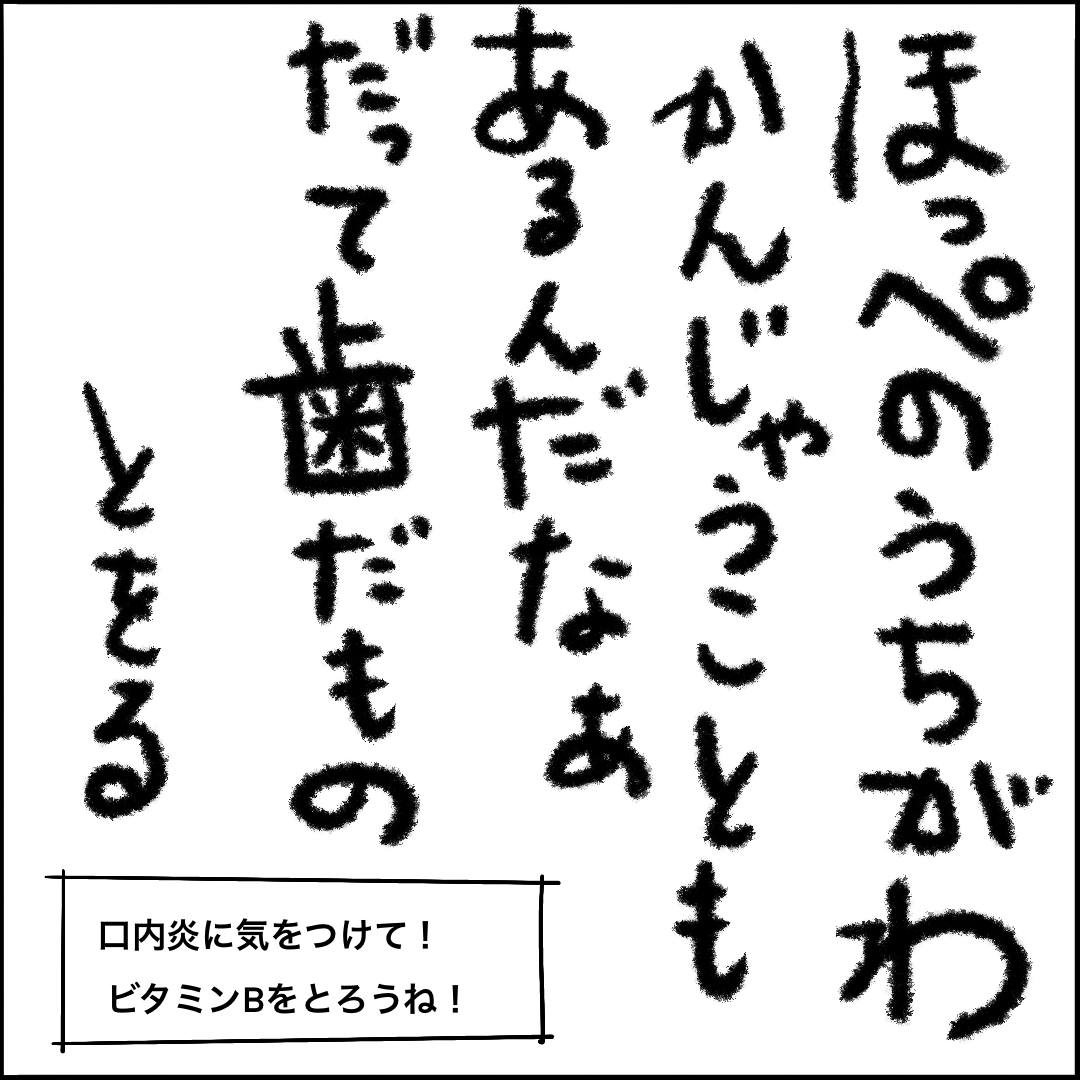 ほっぺのうちがわ
かんじゃうことも
あるんだなぁ
だって歯だもの
とをる
口内炎に気をつけて！
ビタミンBをとろうね！